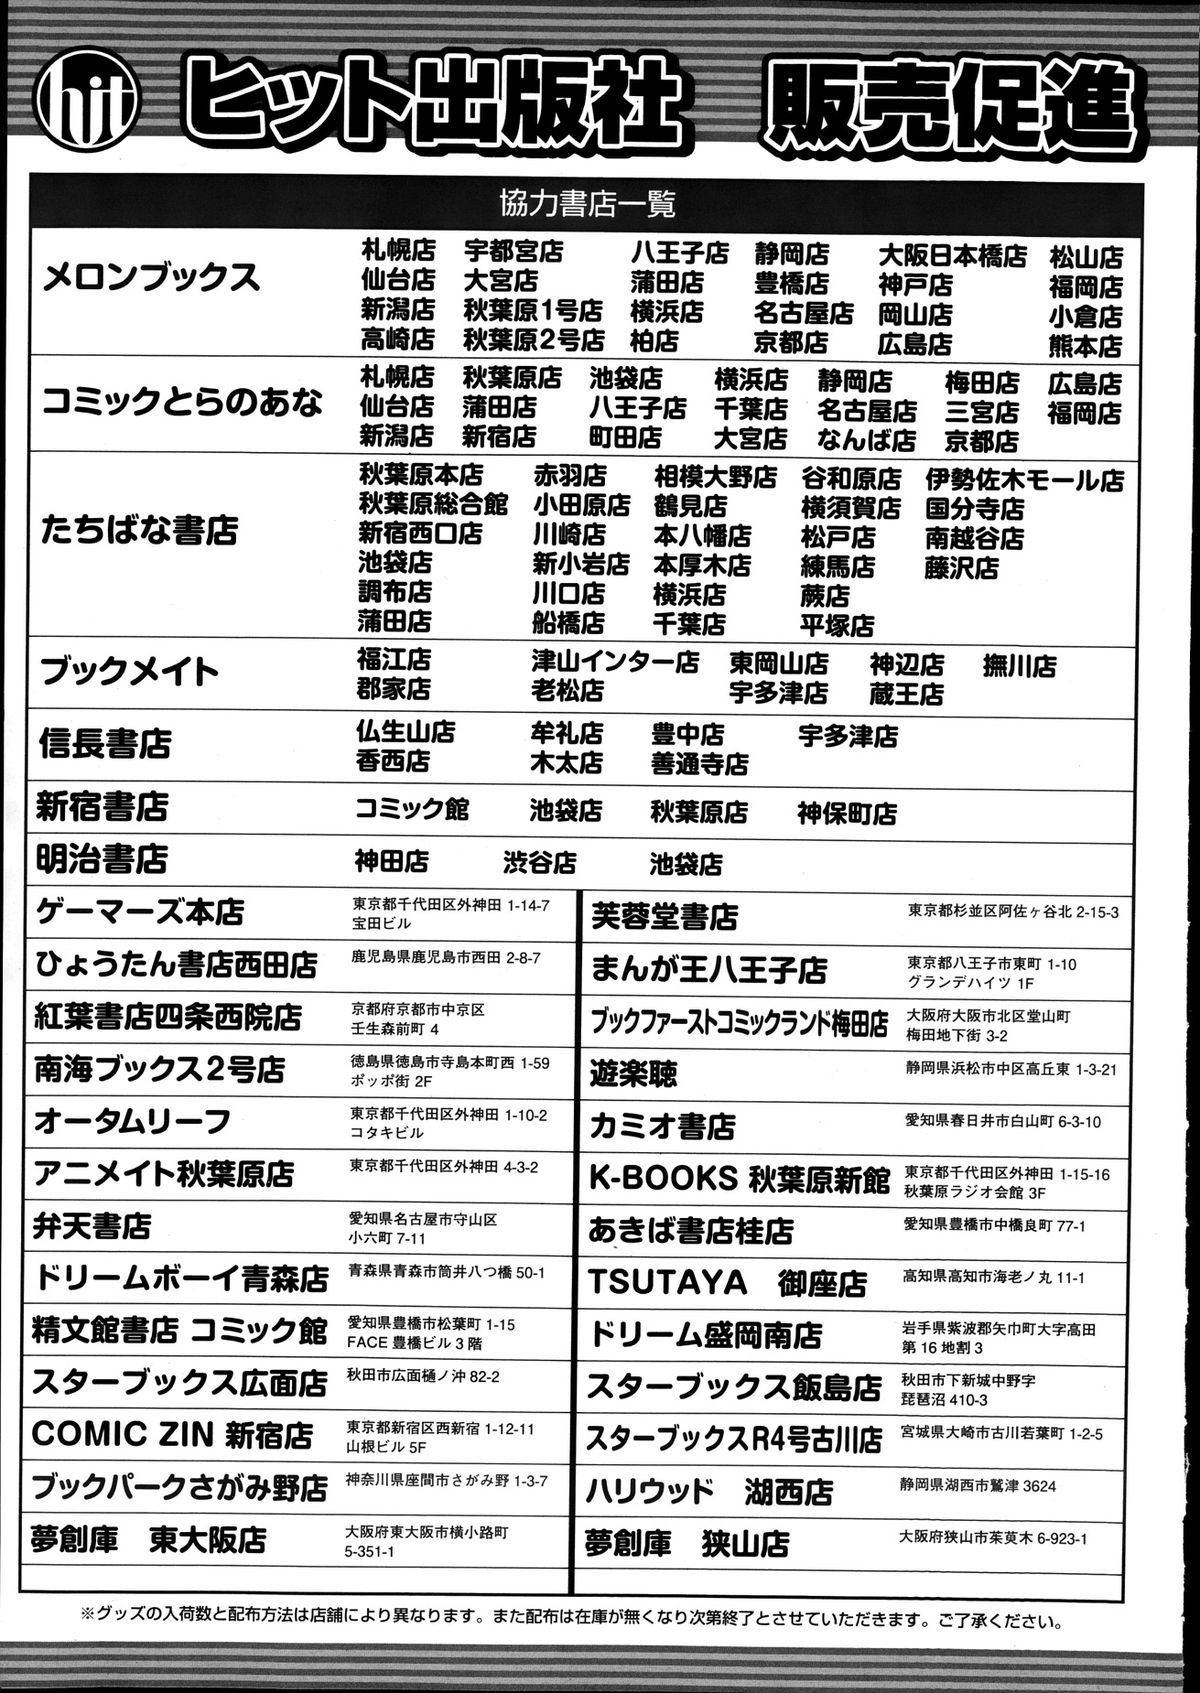 hit ヒット出版社 販売促進
協力書店一覧
メロンブックス
札幌店 宇都宮店 八王子店 静岡店 大阪日本橋店 松山店
仙台店 大宮店 蒲田店 豊橋店 神戸店 福岡店
新潟店 秋葉原1号店 横浜店 名古屋店 岡山店 小倉店
高崎店 秋葉原2号店 柏店 京都店 広島店 熊本店
コミックとらのあな
札幌店 秋葉原店 池袋店 横浜店 静岡店 梅田店 広島店
仙台店 蒲田店 八王子店 千葉店 名古屋店 三宮店 福岡店
新潟店 新宿店 町田店 大宮店 なんば店 京都店
たちばな書店
秋葉原本店 赤羽店 相模大野店 谷和原店 伊勢佐木モール店
秋葉原総合館 小田原店 鶴見店 横須賀店 国分寺店
新宿西口店 川崎店 本八幡店 松戸店 南越谷店
池袋店 新小岩店 本厚木店 練馬店 藤沢店
調布店 川口店 横浜店 蕨店
蒲田店 船橋店 千葉店 平塚店
ブックメイト
福江店 津山インター店 東岡山店 神辺店 撫川店
郡家店 老松店 宇多津店 蔵王店
信長書店
仏生山店 牟礼店 豊中店 宇多津店
香西店 木太店 善通寺店
新宿書店 コミック館 池袋店 秋葉原店 神保町店
明治書店 神田店 渋谷店 池袋店
ゲーマーズ本店 東京都千代田区外神田 1-14-7
宝田ビル
ひょうたん書店西田店 鹿児島県鹿児島市西田 2-8-7
紅葉書店四条西院店 京都府京都市中京区
壬生森前町 4
南海ブックス2号店 徳島県徳島市寺島本町西 1-59
ポッポ街 2F
オータムリーフ 東京都千代田区外神田 1-10-2
コタキビル
アニメイト秋葉原店 東京都千代田区外神田 4-3-2
弁天書店 愛知県名古屋市守山区
小六町 7-11
ドリームボーイ青森店 青森県青森市筒井八つ橋 50-1
精文館書店 コミック館 愛知県豊橋市松葉町 1-15
FACE 豊橋ビル 3 階
スターブックス広面店 秋田市広面樋ノ沖 82-2
COMIC ZIN 新宿店 東京都新宿区西新宿 1-12-11
山根ビル 5F
ブックパークさがみ野店 神奈川県座間市さがみ野 1-3-7
夢創庫 東大阪店 大阪府東大阪市横小路町
5-351-1
芙蓉堂書店 東京都杉並区阿佐ヶ谷北 2-15-3
まんが王八王子店 東京都八王子市東町 1-10
グランデハイツ 1F
ブックファーストコミックランド梅田店 大阪府大阪市北区堂山町
梅田地下街 3-2
遊楽聴 静岡県浜松市中区高丘東 1-3-21
カミオ書店 愛知県春日井市白山町 6-3-10
K-BOOKS 秋葉原新館 東京都千代田区外神田 1-15-16
秋葉原ラジオ会館 3F
あきば書店桂店 愛知県豊橋市中橋良町 77-1
TSUTAYA 御座店 高知県高知市海老ノ丸 11-1
ドリーム盛岡南店 岩手県紫波郡矢巾町大字高田
第 16 地割 3
スターブックス飯島店 秋田市下新城中野字
琵琶沼 410-3
スターブックスR4号古川店 宮城県大崎市古川若葉町 1-2-5
ハリウッド 湖西店 静岡県湖西市鷲津 3624
夢創庫 狭山店 大阪府狭山市茱萸木 6-923-1
※グッズの入荷数と配布方法は店舗により異なります。また配布は在庫が無くなり次第終了とさせていただきます。ご了承ください。